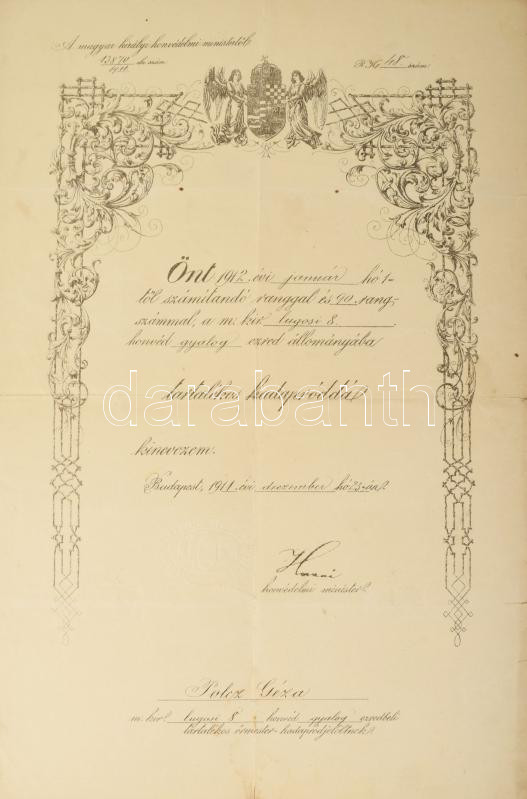 A magyar királyi honvédelmi ministertől.
13870 eln. szám
1911.
R. J. 48 szám.
Önt 1912. évi január hó 1-
től számitandó ranggal és 90. rang-
számmal, a m. kir. lugosi 8.
honvéd gyalog ezred állományába
tartalékos hadapróddá
kinevezem.
Budapest, 1911. évi deczember hó 23-án.
honvédelmi minister.
Polcz Géza
m. kir. lugosi 8. honvéd gyalog ezredbeli
tartalékos őrmester-hadapródjelöltnek.
darabanth